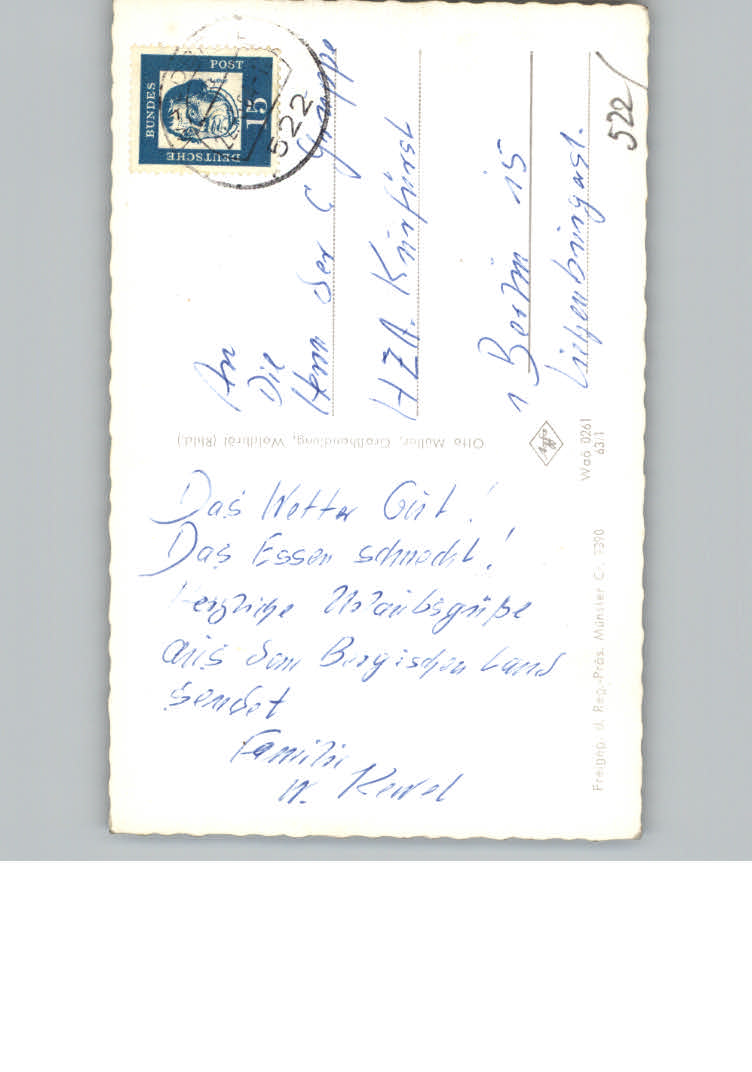 Das Wetter Gut!
Das Essen schmeckt!
Herzliche Urlaubsgrüße
aus dem Bergischen Land
sendet
Familie
W. Kewel
An
Die
Herrn der C Gruppe
HZA. Kurfürst
1 Berlin 15
522
Otto Müller, Großhandlung, Waldbröl (Rhld.)
Agfa
Wa6 0261
63/1
Freigeg. d. Reg.-Präs. Münster C. 3390
DEUTSCHE
BUNDES
POST
15
522